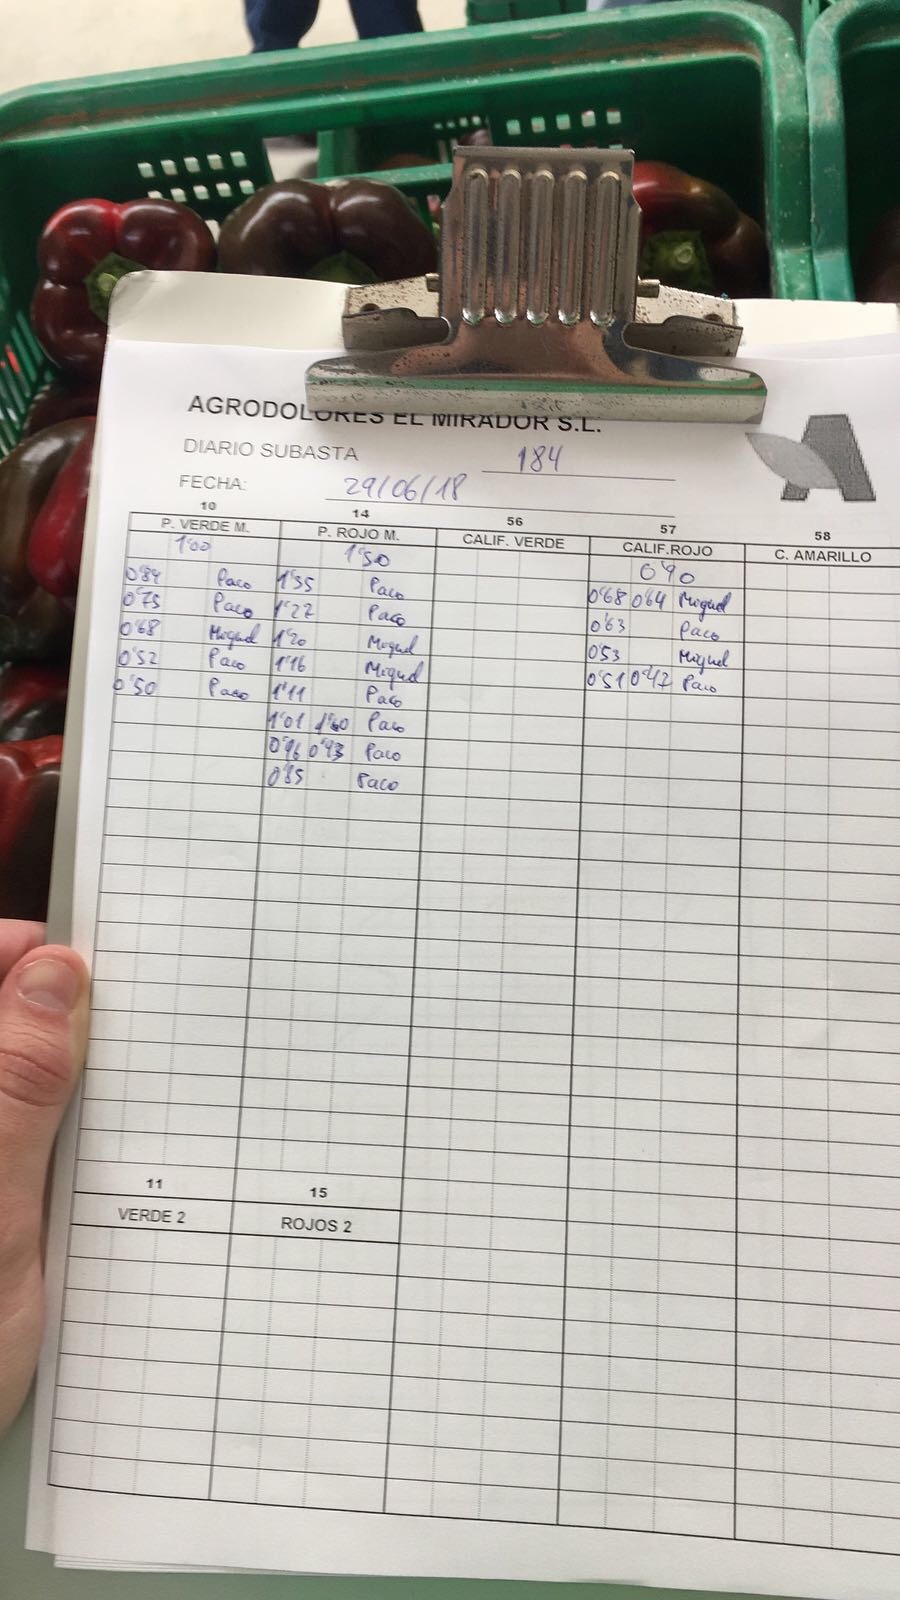 AGRODOLORES EL MIRADOR S.L.
DIARIO SUBASTA 184
FECHA: 29/06/18
10 14 56 57 58
P. VERDE M. P. ROJO M. CALIF. VERDE CALIF.ROJO C. AMARILLO
1'00 1'50 0'90
0'84 Paco 1'35 Paco 0'68 0'64 Miguel
0'75 Paco 1'27 Paco 0'63 Paco
0'68 Miguel 1'20 Miguel 0'53 Miguel
0'52 Paco 1'16 Miguel 0'51 0'47 Paco
0'50 Paco 1'11 Paco
1'01 Paco
0'96 0'93 Paco
0'85 Paco
11 15
VERDE 2 ROJOS 2